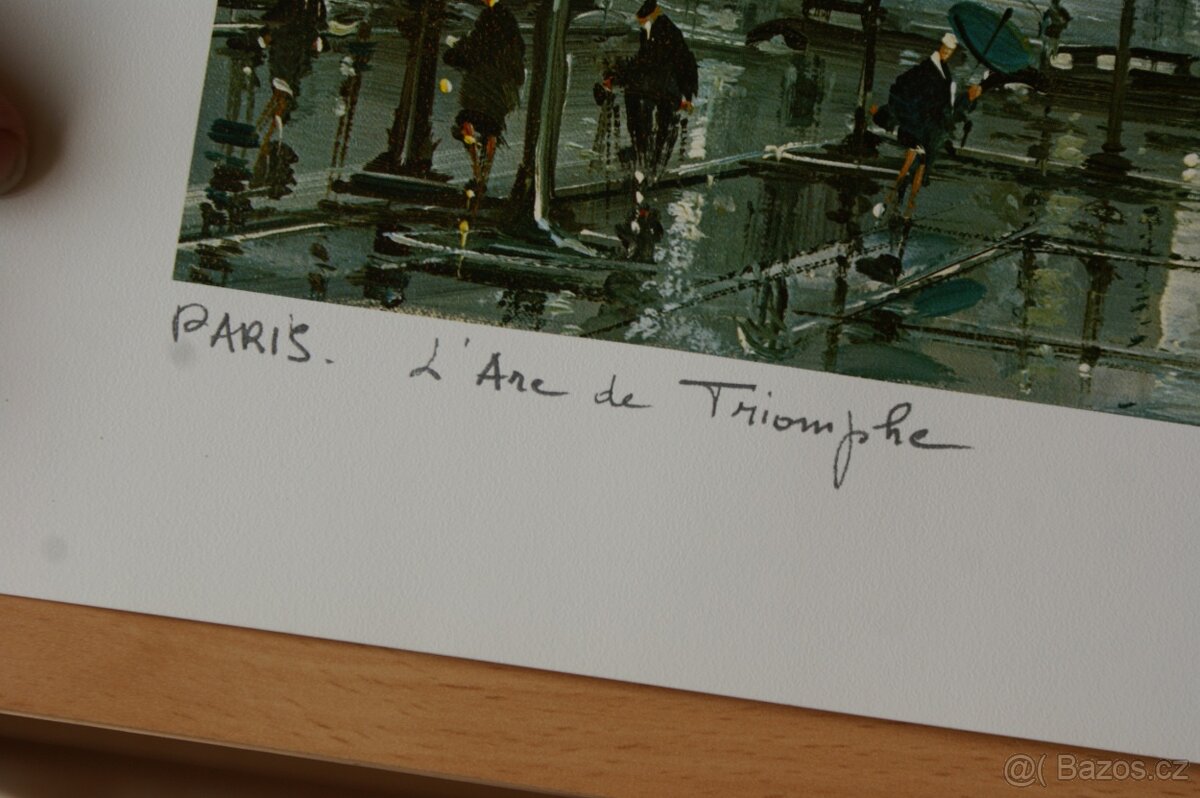 PARIS. L'Arc de Triomphe
@( Bazos.cz